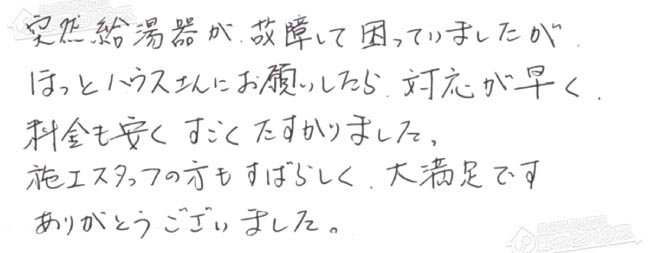 突然給湯器が、故障して困っていましたが、
ほっとハウスさんにお願いしたら、対応が早く、
料金も安くすごくたすかりました。
施工スタッフの方もすばらしく、大満足です
ありがとうございました。
ほっとハウス